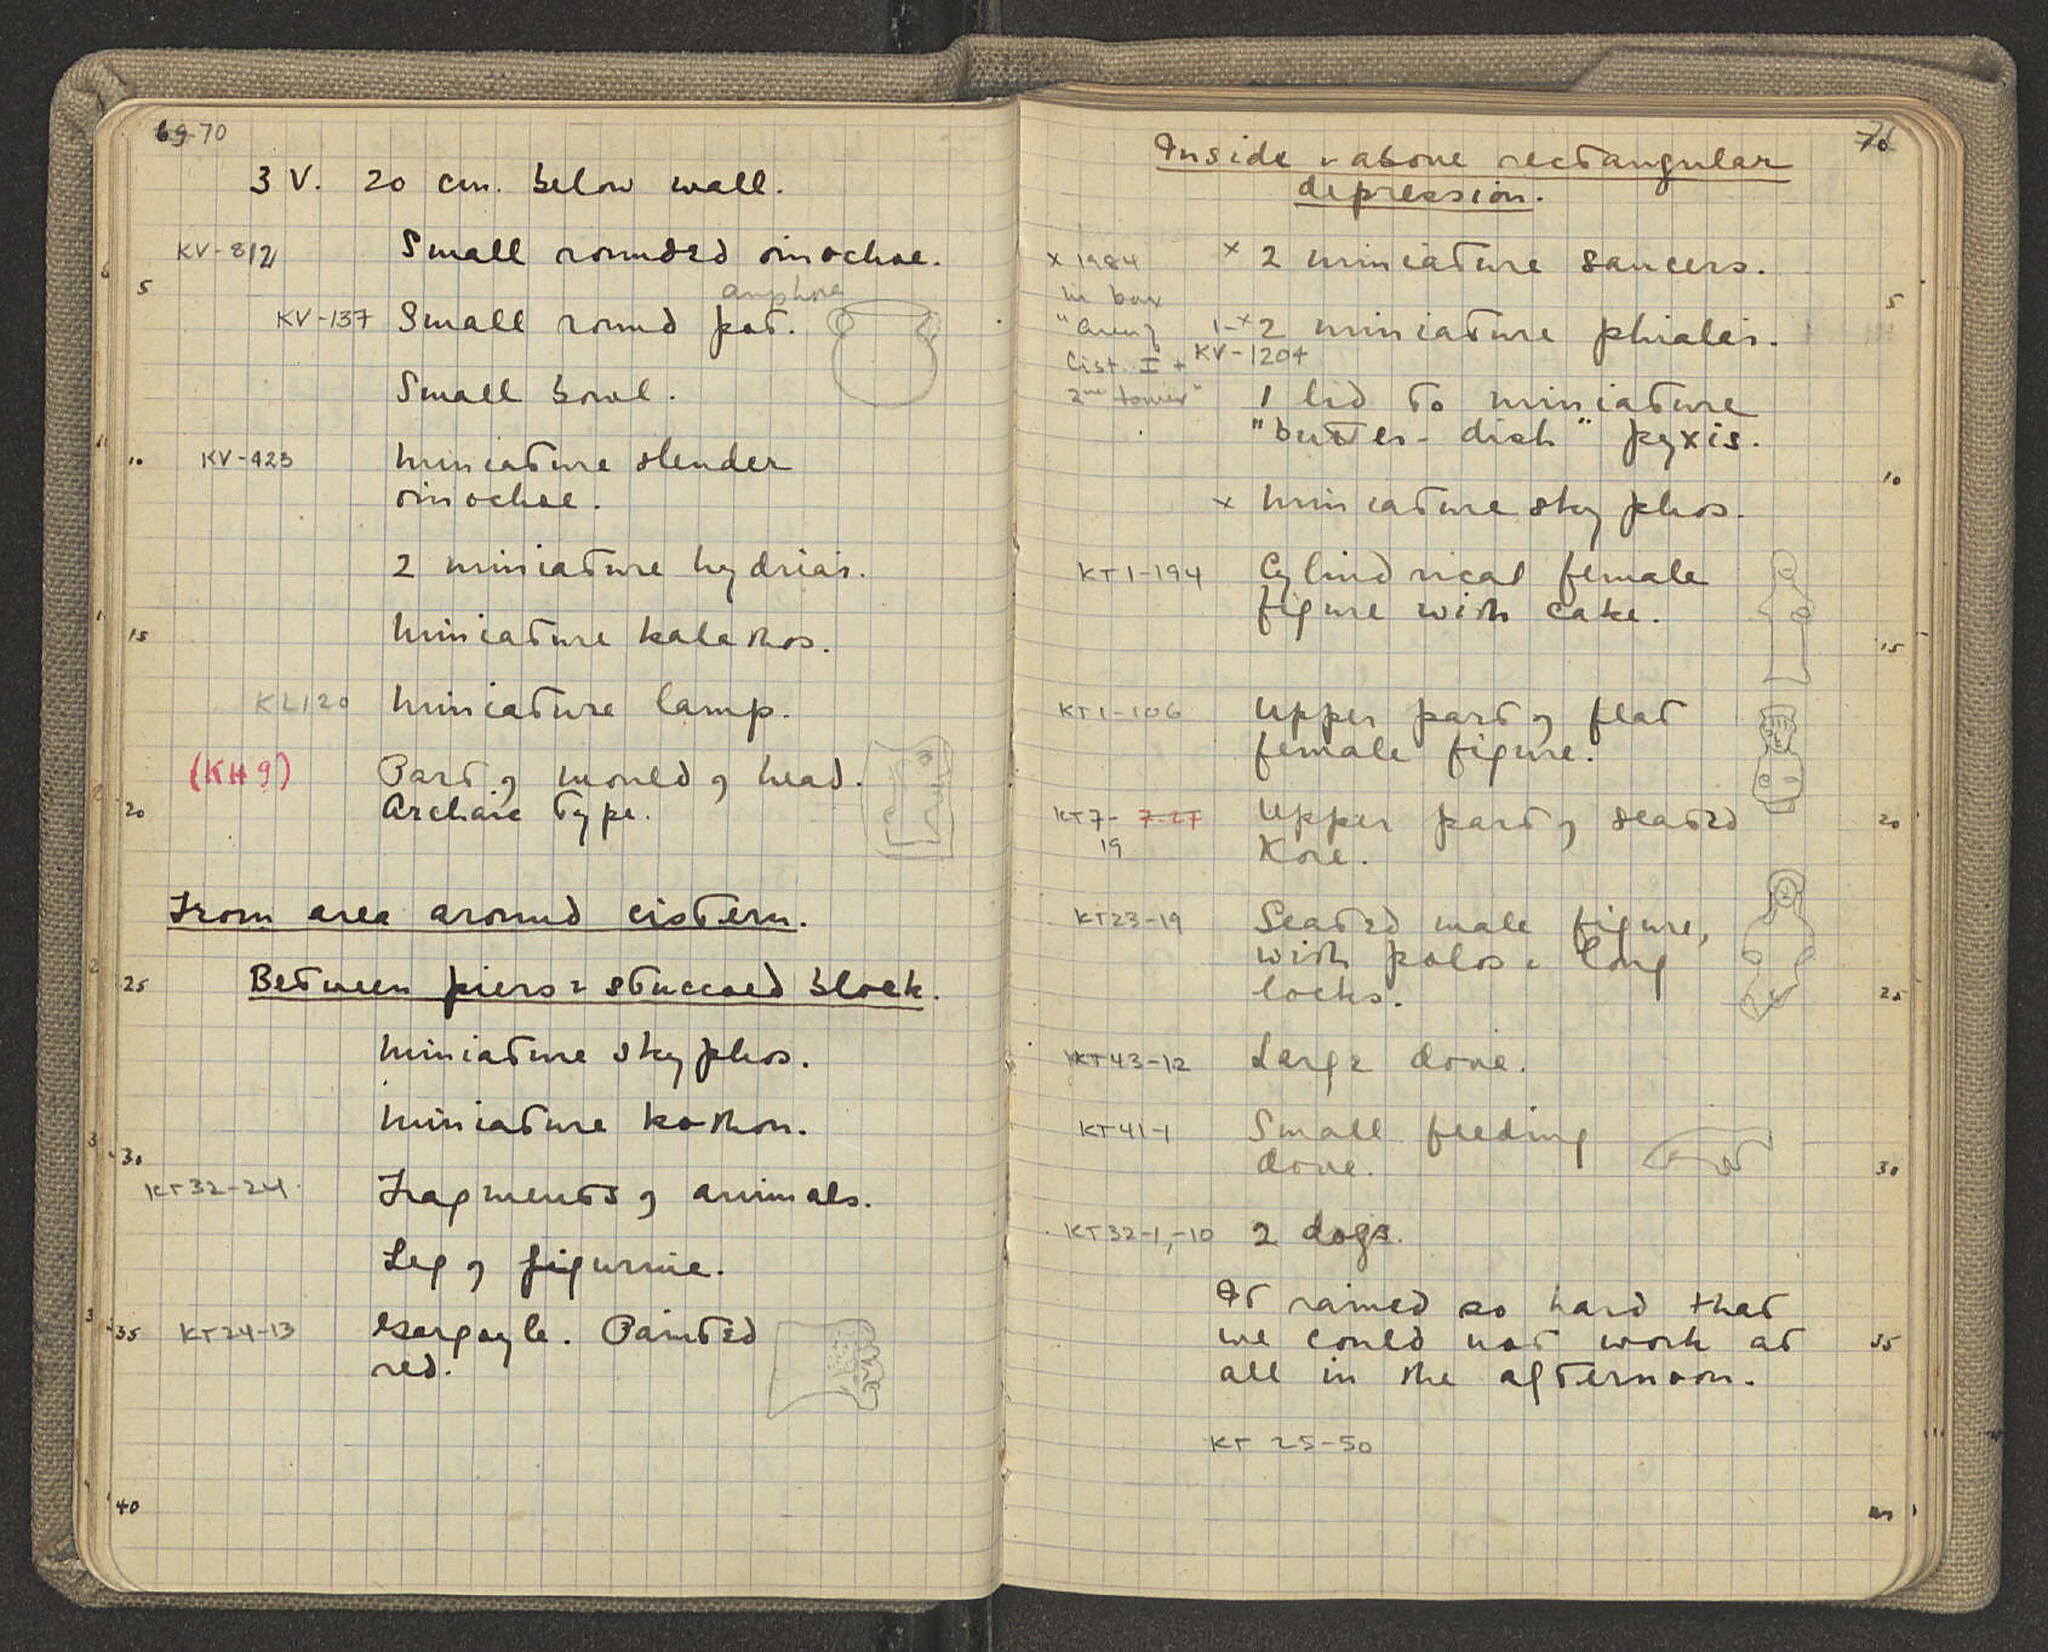 69-70
3 V. 20 cm. below wall.
KV-812 Small rounded oinochoe.
5
amphora
KV-137 Small round pot.
Small bowl.
10 KV-423 Miniature slender
oinochoe.
2 miniature hydriai.
15 Miniature kalathos.
KL120 Miniature lamp.
(KH 9) Part of mould of head.
20 Archaic type.
From area around cistern.
25 Between piers & stuccoed block.
Miniature skyphos.
Miniature kothon.
30
KT32-24 Fragments of animals.
Leg of figurine.
35 KT24-13 Gargoyle. Painted
red.
40
Inside & above rectangular
depression.
x 1984 x 2 miniature saucers.
in box 5
"Area of 1-x2 miniature phialai.
Cist. I + KV-1204
2nd tower" 1 lid to miniature
"butter-dish" pyxis.
10
x Miniature skyphos.
KT1-194 Cylindrical female
figure with cake.
15
KT1-106 Upper part of flat
female figure.
KT7- 7-27 Upper part of seated 20
19 Kore.
KT23-19 Seated male figure,
with polos & long
locks. 25
KT43-12 Large dove.
KT41-1 Small feeding
dove. 30
KT32-1,-10 2 dogs.
It rained so hard that
we could not work at 35
all in the afternoon.
KT 25-50